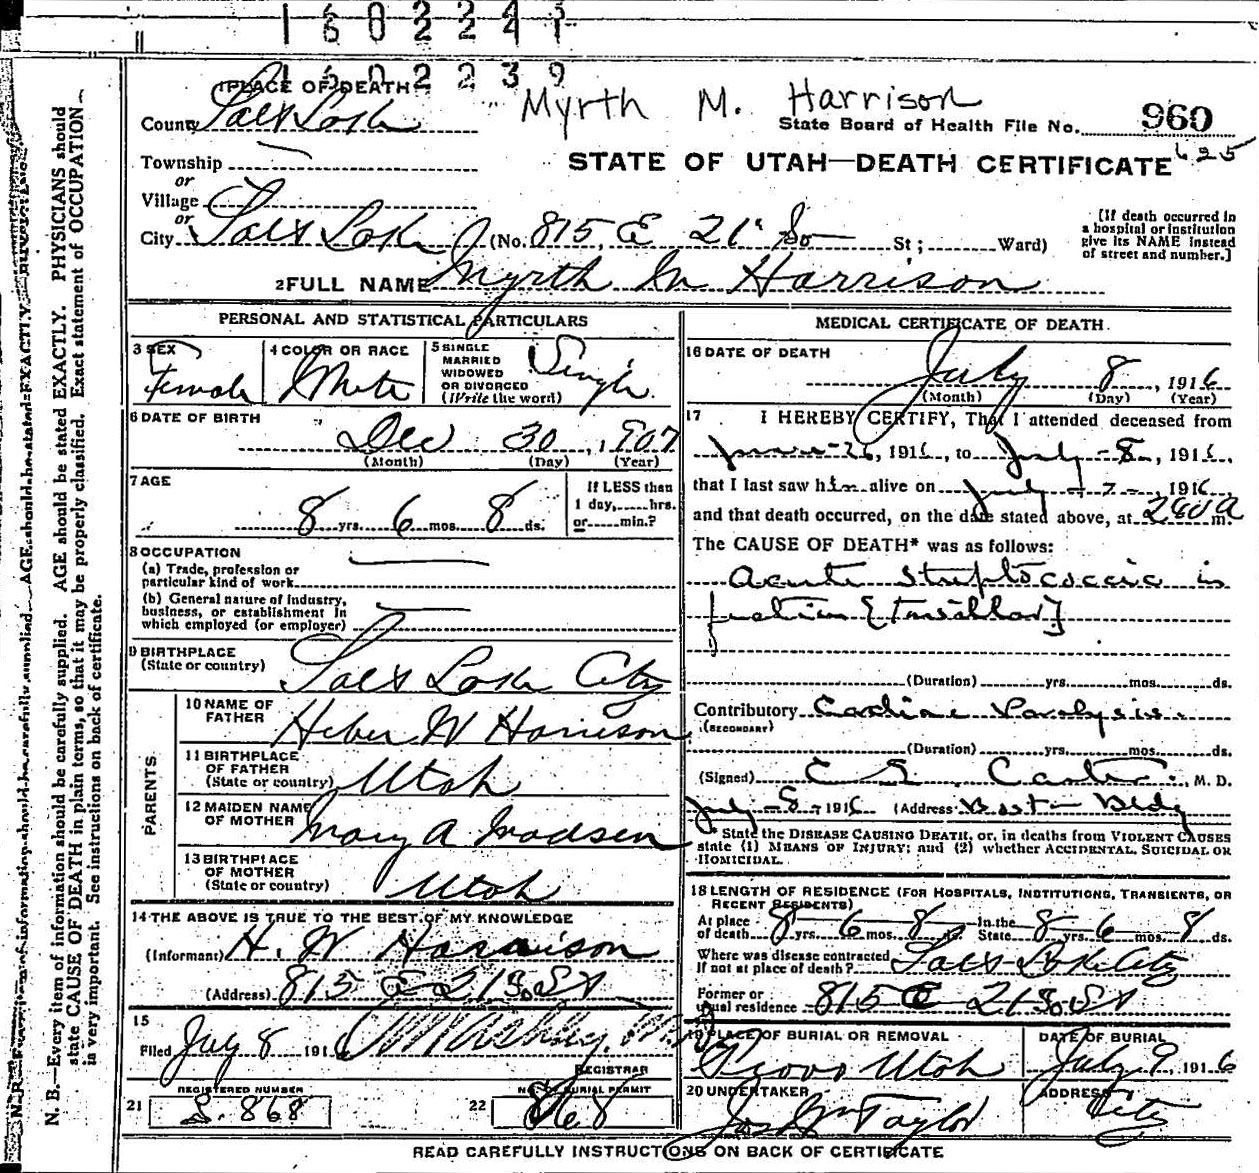 1602241
1602239
1 PLACE OF DEATH
Myrth M. Harrison
County Salt Lake
State Board of Health File No. 960
625
Township
or
STATE OF UTAH—DEATH CERTIFICATE
Village
or
City Salt Lake (No. 815 E 21st So St; Ward)
[If death occurred in
a hospital or institution
give its NAME instead
of street and number.]
2 FULL NAME Myrth M Harrison
PERSONAL AND STATISTICAL PARTICULARS
3 SEX
Female
4 COLOR OR RACE
White
5 SINGLE
MARRIED
WIDOWED
OR DIVORCED
(Write the word)
Single
6 DATE OF BIRTH
Dec 30, 1907
(Month) (Day) (Year)
7 AGE
8 yrs. 6 mos. 8 ds.
If LESS than
1 day, hrs.
or min.?
8 OCCUPATION
(a) Trade, profession or
particular kind of work
(b) General nature of industry,
business, or establishment in
which employed (or employer)
9 BIRTHPLACE
(State or country) Salt Lake City
PARENTS
10 NAME OF
FATHER Heber W Harrison
11 BIRTHPLACE
OF FATHER
(State or country) Utah
12 MAIDEN NAME
OF MOTHER Mary A Madsen
13 BIRTHPLACE
OF MOTHER
(State or country) Utah
14 THE ABOVE IS TRUE TO THE BEST OF MY KNOWLEDGE
(Informant) H. W Harrison
(Address) 815 E 21 So. St
15
Filed July 8 1916
REGISTRAR
REGISTERED NUMBER
21 S. 868
NO. BURIAL PERMIT
22 868
MEDICAL CERTIFICATE OF DEATH
16 DATE OF DEATH
July 8, 1916
(Month) (Day) (Year)
17 I HEREBY CERTIFY, That I attended deceased from
June-26, 1916, to July-8-, 1916,
that I last saw him alive on July-7-, 1916
and that death occurred, on the date stated above, at 240 a m.
The CAUSE OF DEATH* was as follows:
Acute streptococcic in
fection [tonsillar]
(Duration) yrs. mos. ds.
Contributory Cardiac Paralysis.
(SECONDARY)
(Duration) yrs. mos. ds.
(Signed) C E , M. D.
July-8-, 1916 (Address) Bldg
* State the DISEASE CAUSING DEATH, or, in deaths from VIOLENT CAUSES
state (1) MEANS OF INJURY; and (2) whether ACCIDENTAL, SUICIDAL OR
HOMICIDAL.
18 LENGTH OF RESIDENCE (FOR HOSPITALS, INSTITUTIONS, TRANSIENTS, OR
RECENT RESIDENTS)
At place
of death 8 yrs. 6 mos. 8 ds.
In the
State 8 yrs. 6 mos. 8 ds.
Where was disease contracted
If not at place of death? Salt Lake City
Former or
usual residence 815 E 21 So St
19 PLACE OF BURIAL OR REMOVAL
Provo Utah
DATE OF BURIAL
July 9, 1916
20 UNDERTAKER
Jos Wm Taylor
ADDRESS
City
READ CAREFULLY INSTRUCTIONS ON BACK OF CERTIFICATE
N. B.—Every item of information should be carefully supplied. AGE should be stated EXACTLY. PHYSICIANS should
state CAUSE OF DEATH in plain terms, so that it may be properly classified. Exact statement of OCCUPATION
is very important. See instructions on back of certificate.